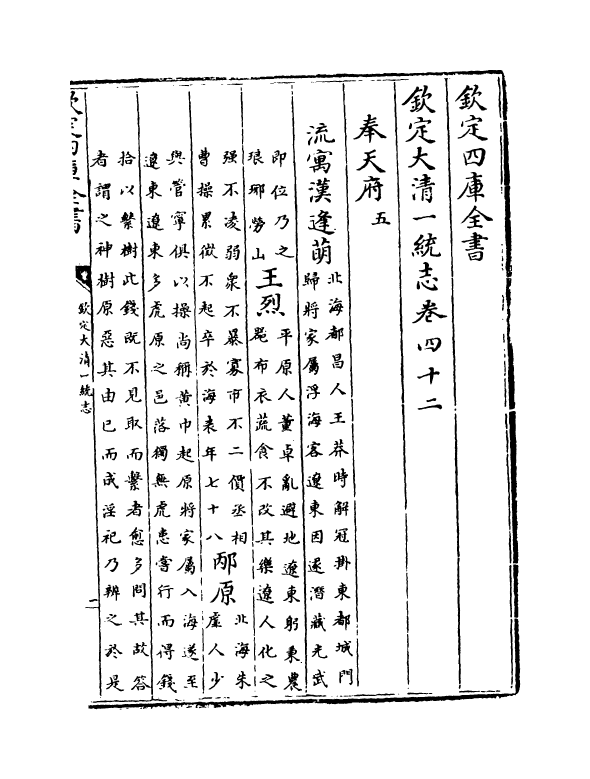 欽定四庫全書
欽定大清一統志卷四十二
奉天府五
流寓漢逢萌
北海都昌人王莽時解冠掛東都城門
歸將家屬浮海客遼東因遂潛藏光武
即位乃之
琅琊勞山
王烈
平原人董卓亂避地遼東躬秉農
器布衣蔬食不改其樂遼人化之
强不凌弱衆不暴寡市不二價丞相
曹操累徵不起卒於海表年七十八
邴原
北海朱
虛人少
與管寧俱以操尚稱黃巾起原將家屬入海遂至
遼東遼東多虎原之邑落獨無虎患嘗行而得錢
拾以繫樹此錢既不見取而繫者愈多問其故答
者謂之神樹原惡其由已而成淫祀乃辨之於是
欽定四庫全書
欽定大清一統志